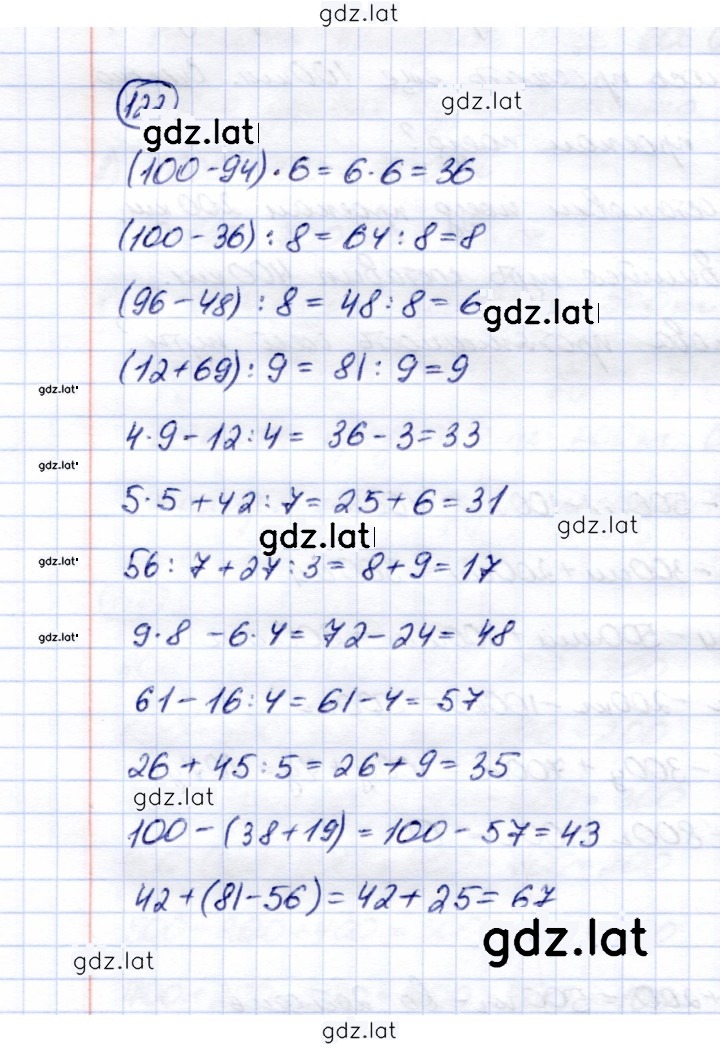 gdz.lat
122
gdz.lat
gdz.lat
(100-94)·6=6·6=36
(100-36):8=64:8=8
(96-48):8=48:8=6
gdz.lat
(12+69):9= 81:9=9
gdz.lat
4·9-12:4= 36-3=33
gdz.lat
5·5+42:7=25+6=31
gdz.lat
gdz.lat
56:7+27:3=8+9=17
gdz.lat
9·8-6·4=72-24=48
gdz.lat
61-16:4=61-4=57
26+45:5=26+9=35
gdz.lat
100-(38+19)=100-57=43
42+(81-56)=42+25=67
gdz.lat
gdz.lat
gdz.lat